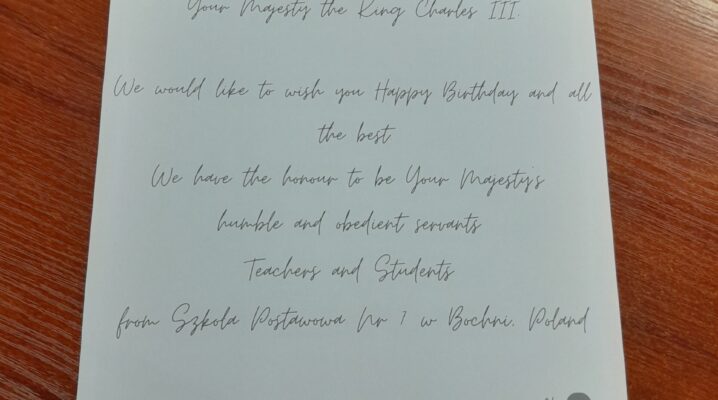 Your Majesty the King Charles III.
We would like to wish you Happy Birthday and all
the best
We have the honour to be Your Majesty's
humble and obedient servants
Teachers and Students
from Szkola Postawowa Nr 7 w Bochni, Poland